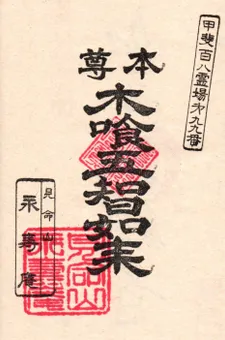 甲斐百八霊場第九九番
本尊
木喰五智如来
見命山
永寿庵